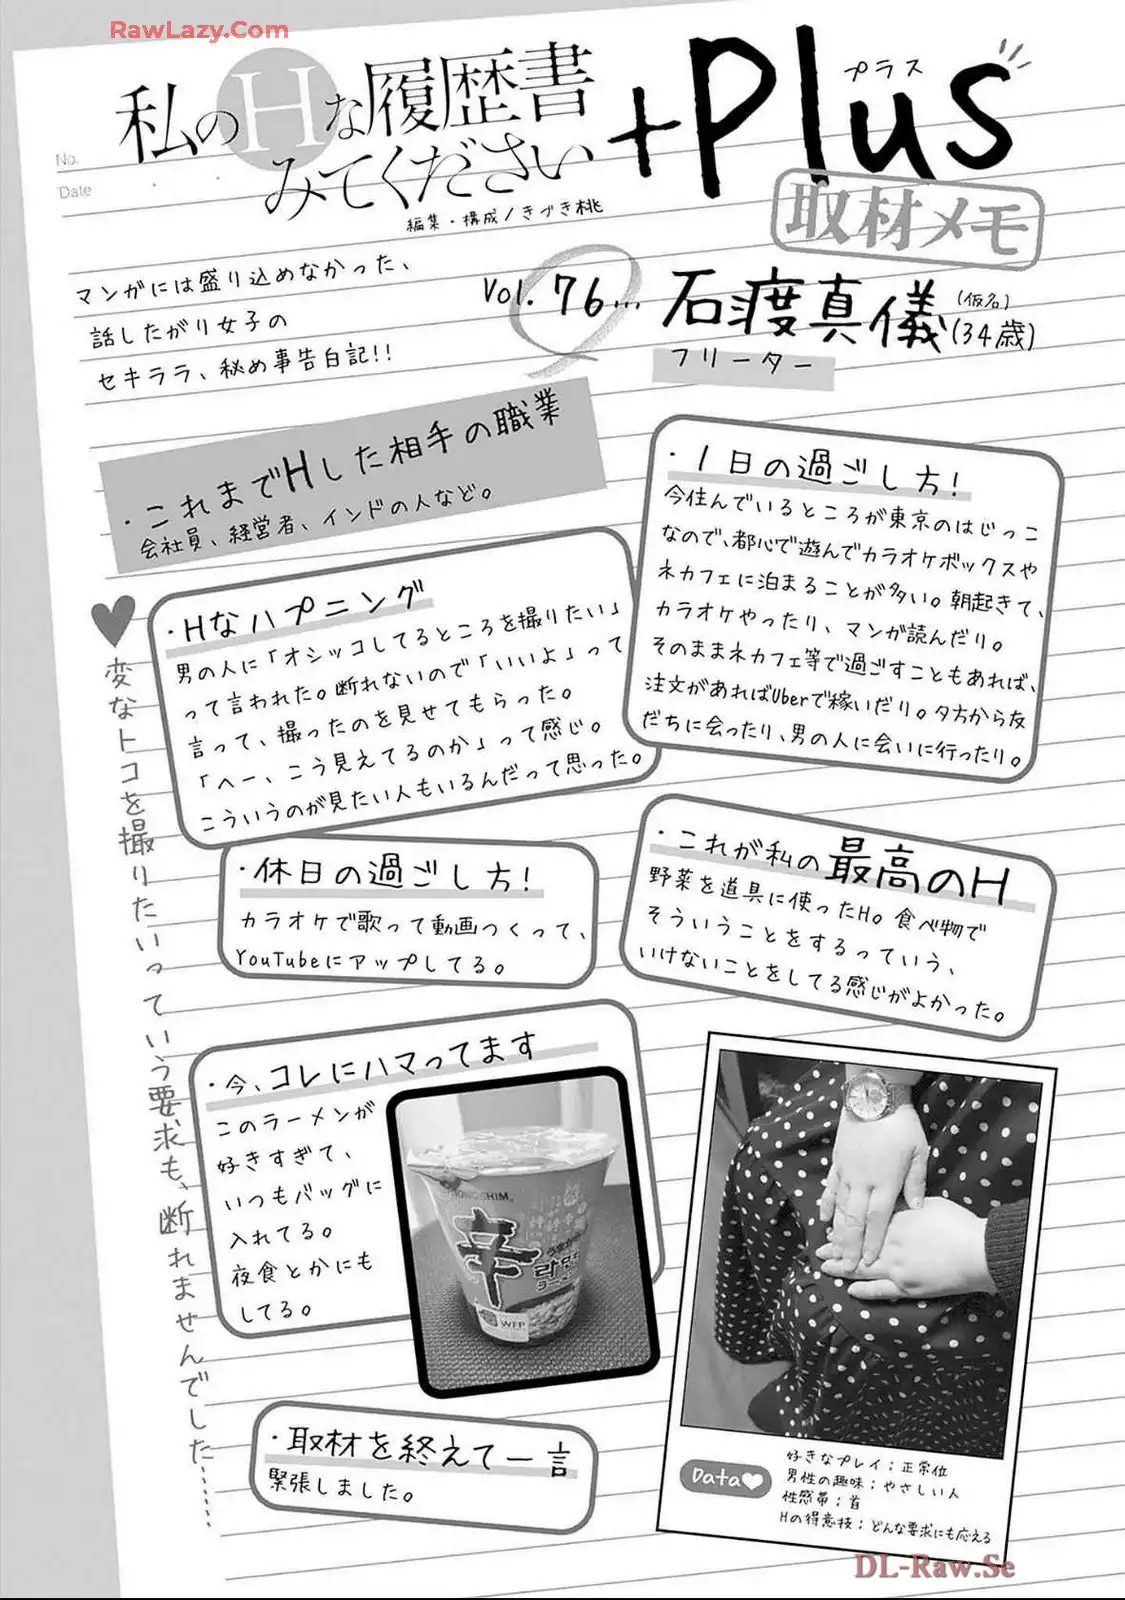 RawLazy.Com
私のHな履歴書
みてください
+Plus
プラス
取材メモ
No.
Date
編集・構成/きづき桃
マンガには盛り込めなかった、
話したがり女子の
セキララ、秘め事告白記!!
Vol. 76...
石渡真儀
(仮名)
(34歳)
フリーター
・これまでHした相手の職業
会社員、経営者、インドの人など。
・1日の過ごし方!
今住んでいるところが東京のはじっこ
なので、都心で遊んでカラオケボックスや
ネカフェに泊まることが多い。朝起きて、
カラオケやったり、マンガ読んだり。
そのままネカフェ等で過ごすこともあれば、
注文があればUberで稼いだり。夕方から友
だちに会ったり、男の人に会いに行ったり。
・Hなハプニング
男の人に「オシッコしてるところを撮りたい」
って言われた。断れないので「いいよ」って
言って、撮ったのを見せてもらった。
「へー、こう見えてるのか」って感じ。
こういうのが見たい人もいるんだって思った。
♥変なトコを撮りたいっていう要求も、断れませんでした……
・休日の過ごし方!
カラオケで歌って動画つくって、
YouTubeにアップしてる。
・これが私の最高のH
野菜を道具に使ったH。食べ物で
そういうことをするっていう、
いけないことをしてる感じがよかった。
・今、コレにハマってます
このラーメンが
好きすぎて、
いつもバッグに
入れてる。
夜食とかにも
してる。
NONGSHIM
辛
라면
WFP
・取材を終えて一言
緊張しました。
Data♥
好きなプレイ;正常位
男性の趣味;やさしい人
性感帯;首
Hの得意技;どんな要求にも応える
DL-Raw.Se